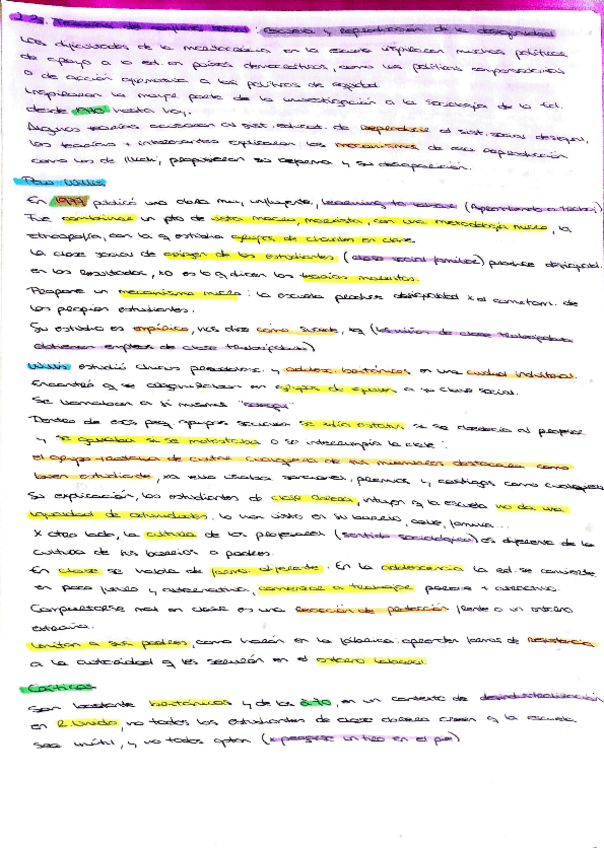 2.3. Teorías del conflicto social: Escuela y reproducción de la desigualdad
Las dificultades de la meritocracia en la escuela inspiraron muchas políticas
de apoyo a la ed. en países democráticos, como las políticas compensatorias
o de acción afirmativa a las políticas de igualdad.
Inspiraron la mayor parte de la investigación a la sociología de la Ed.
desde 1970 hasta hoy.
Algunas teorías acusaron al sist. educat. de reproducir el sist. social desigual,
las teorías + interesantes explicaron los mecanismos de esa reproducción
como los de Illich, propusieron su reforma y su desaparición.
Paul Willis
En 1977 publicó una obra muy influyente, Learning to labour (Aprendiendo a trabajar)
Fue combinar un pto de vista macro, marxista, con una metodología micro, la
etnografía, con la q estudia grupos de charlas en clase.
La clase social de origen de los estudiantes (clase social familiar) produce desigualdad
en los resultados, xo es lo q dicen las teorías marxistas.
Propone un mecanismo micro: la escuela produce desigualdad x el comportam. de
los propios estudiantes.
Su estudio es empírico, nos dice como sucede, eg (los niños de clase trabajadora
obtienen empleos de clase trabajadora)
Willis estudió chavos y adolesc. británicos en una ciudad industrial.
Encontró q se en grupos de iguales a su clase social.
Se llamaban a sí mismos
Dentro de esos peq. grupos se si se desafía al profesor
y se ganaba si se molestaba o se interrumpía la clase:
el grupo trataba de evitar cualquiera de sus miembros destacara como
buen estudiante, xa ello usaba sanciones, premios y castigos como cualquiera
Su explicación, los estudiantes de clase obrera, intuyen q la escuela no da una
igualdad de oportunidades, lo han visto en su barrio, calle, familia...
X otro lado, la cultura de los profesores (sentido sociológico) es diferente de la
cultura de sus barrios o padres.
En clase se habla de forma diferente. En la adolescencia la ed. se convierte
en poco y alternativa, comenzar a trabajar parece + atractivo.
Comportarse mal en clase es una reacción de protección frente a un entorno
extraño.
Imitan a sus padres, como harán en la fábrica: aprender formas de resistencia
a la autoridad q les servirán en el entorno laboral.
Críticas
Son bastante británicos y de los a.70, en un contexto de desindustrialización
en R.Unido, no todos los estudiantes de clase obrera creen q la escuela
sea inútil, y no todos optan (x pegarse un tiro en el pie)